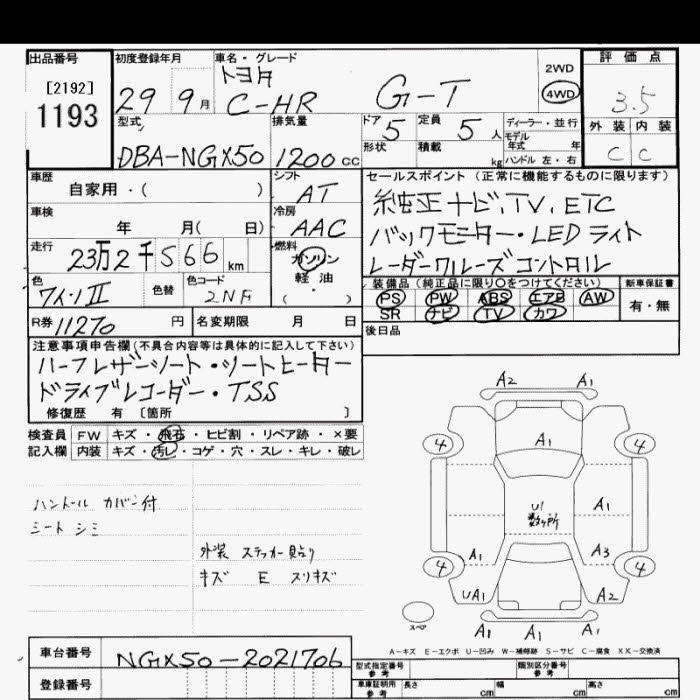 出品番号 初度登録年月 車名・グレード 評価点
[2192] トヨタ 2WD
1193 29 9月 C-HR G-T 4WD 3.5
型式 排気量 ドア 5 定員 5人 ディーラー・並行 外装 内装
形状 積載 kg モデル年式 年
DBA-NGX50 1200cc ハンドル 左・右 C C
車歴 シフト セールスポイント (正常に機能するものに限ります)
自家用・( ) AT 純正ナビ.TV.ETC
車検 冷房
年 月( 日) AAC バックモニター・LEDライト
走行 燃料
23万2千566km ガソリン レーダークルーズコントロール
軽油
色 色替 色コード ( ・ ) 装備品 (純正品に限り○をつけてください) 新車保証書
ワインⅡ 2NF PS PW ABS エアB AW 有・無
SR ナビ TV カワ
R券 11270円 名変期限 月 日 後日品
注意事項申告欄(不具合内容等は具体的に記入して下さい)
ハーフレザーシート・シートヒーター
ドライブレコーダー・TSS
修復歴 有 [箇所 ]
検査員 FW キズ・飛石・ヒビ割・リペア跡・×要
記入欄 内装 キズ・汚レ・コゲ・穴・スレ・キレ・破レ
A2 A1
4 A1 4
ハンドル カバー付 U1 A1
シート シミ 数ヶ所
外装 ステッカー貼り A1 A3
キズ E スリキズ 4 4
UA1 A2
スペア A1 A1 A1
A-キズ E-エクボ U-凹み W-補修跡 S-サビ C-腐食 XX-交換済
車台番号 NGX50-2021706 型式指定番号 参考 類別区分番号 参考
登録番号 車庫証明用 参考 長さ cm 幅 cm 高さ cm